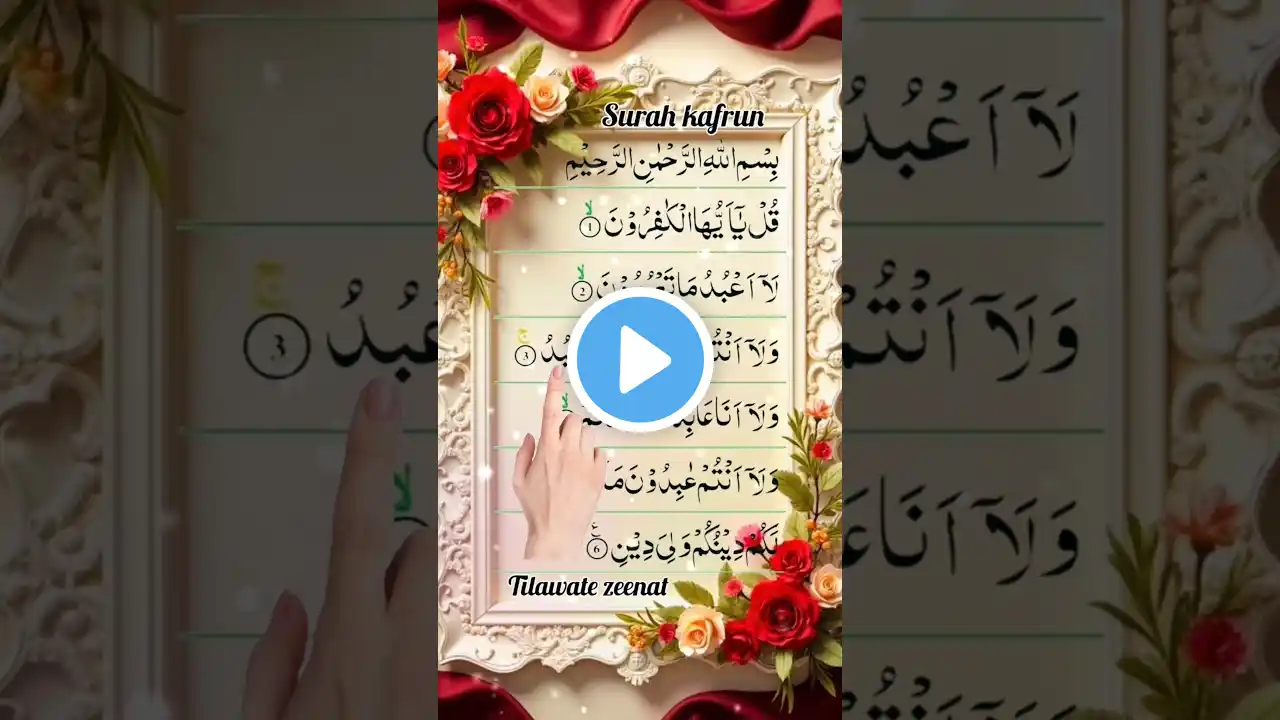 Surah kafrun
بِسْمِ اللّٰهِ الرَّحْمٰنِ الرَّحِيْمِ
قُلْ يٰۤاَيُّهَا الْكٰفِرُوْنَ ۙ ①
لَاۤ اَعْبُدُ مَا تَعْبُدُوْنَ ۙ ②
وَلَاۤ اَنْتُمْ ج ③
وَلَاۤ اَنَا عَابِدٌ
وَلَاۤ اَنْتُمْ عٰبِدُوْنَ مَاۤ
لَكُمْ دِيْنُكُمْ وَلِيَ دِيْنِ ⑥
Tilawate zeenat